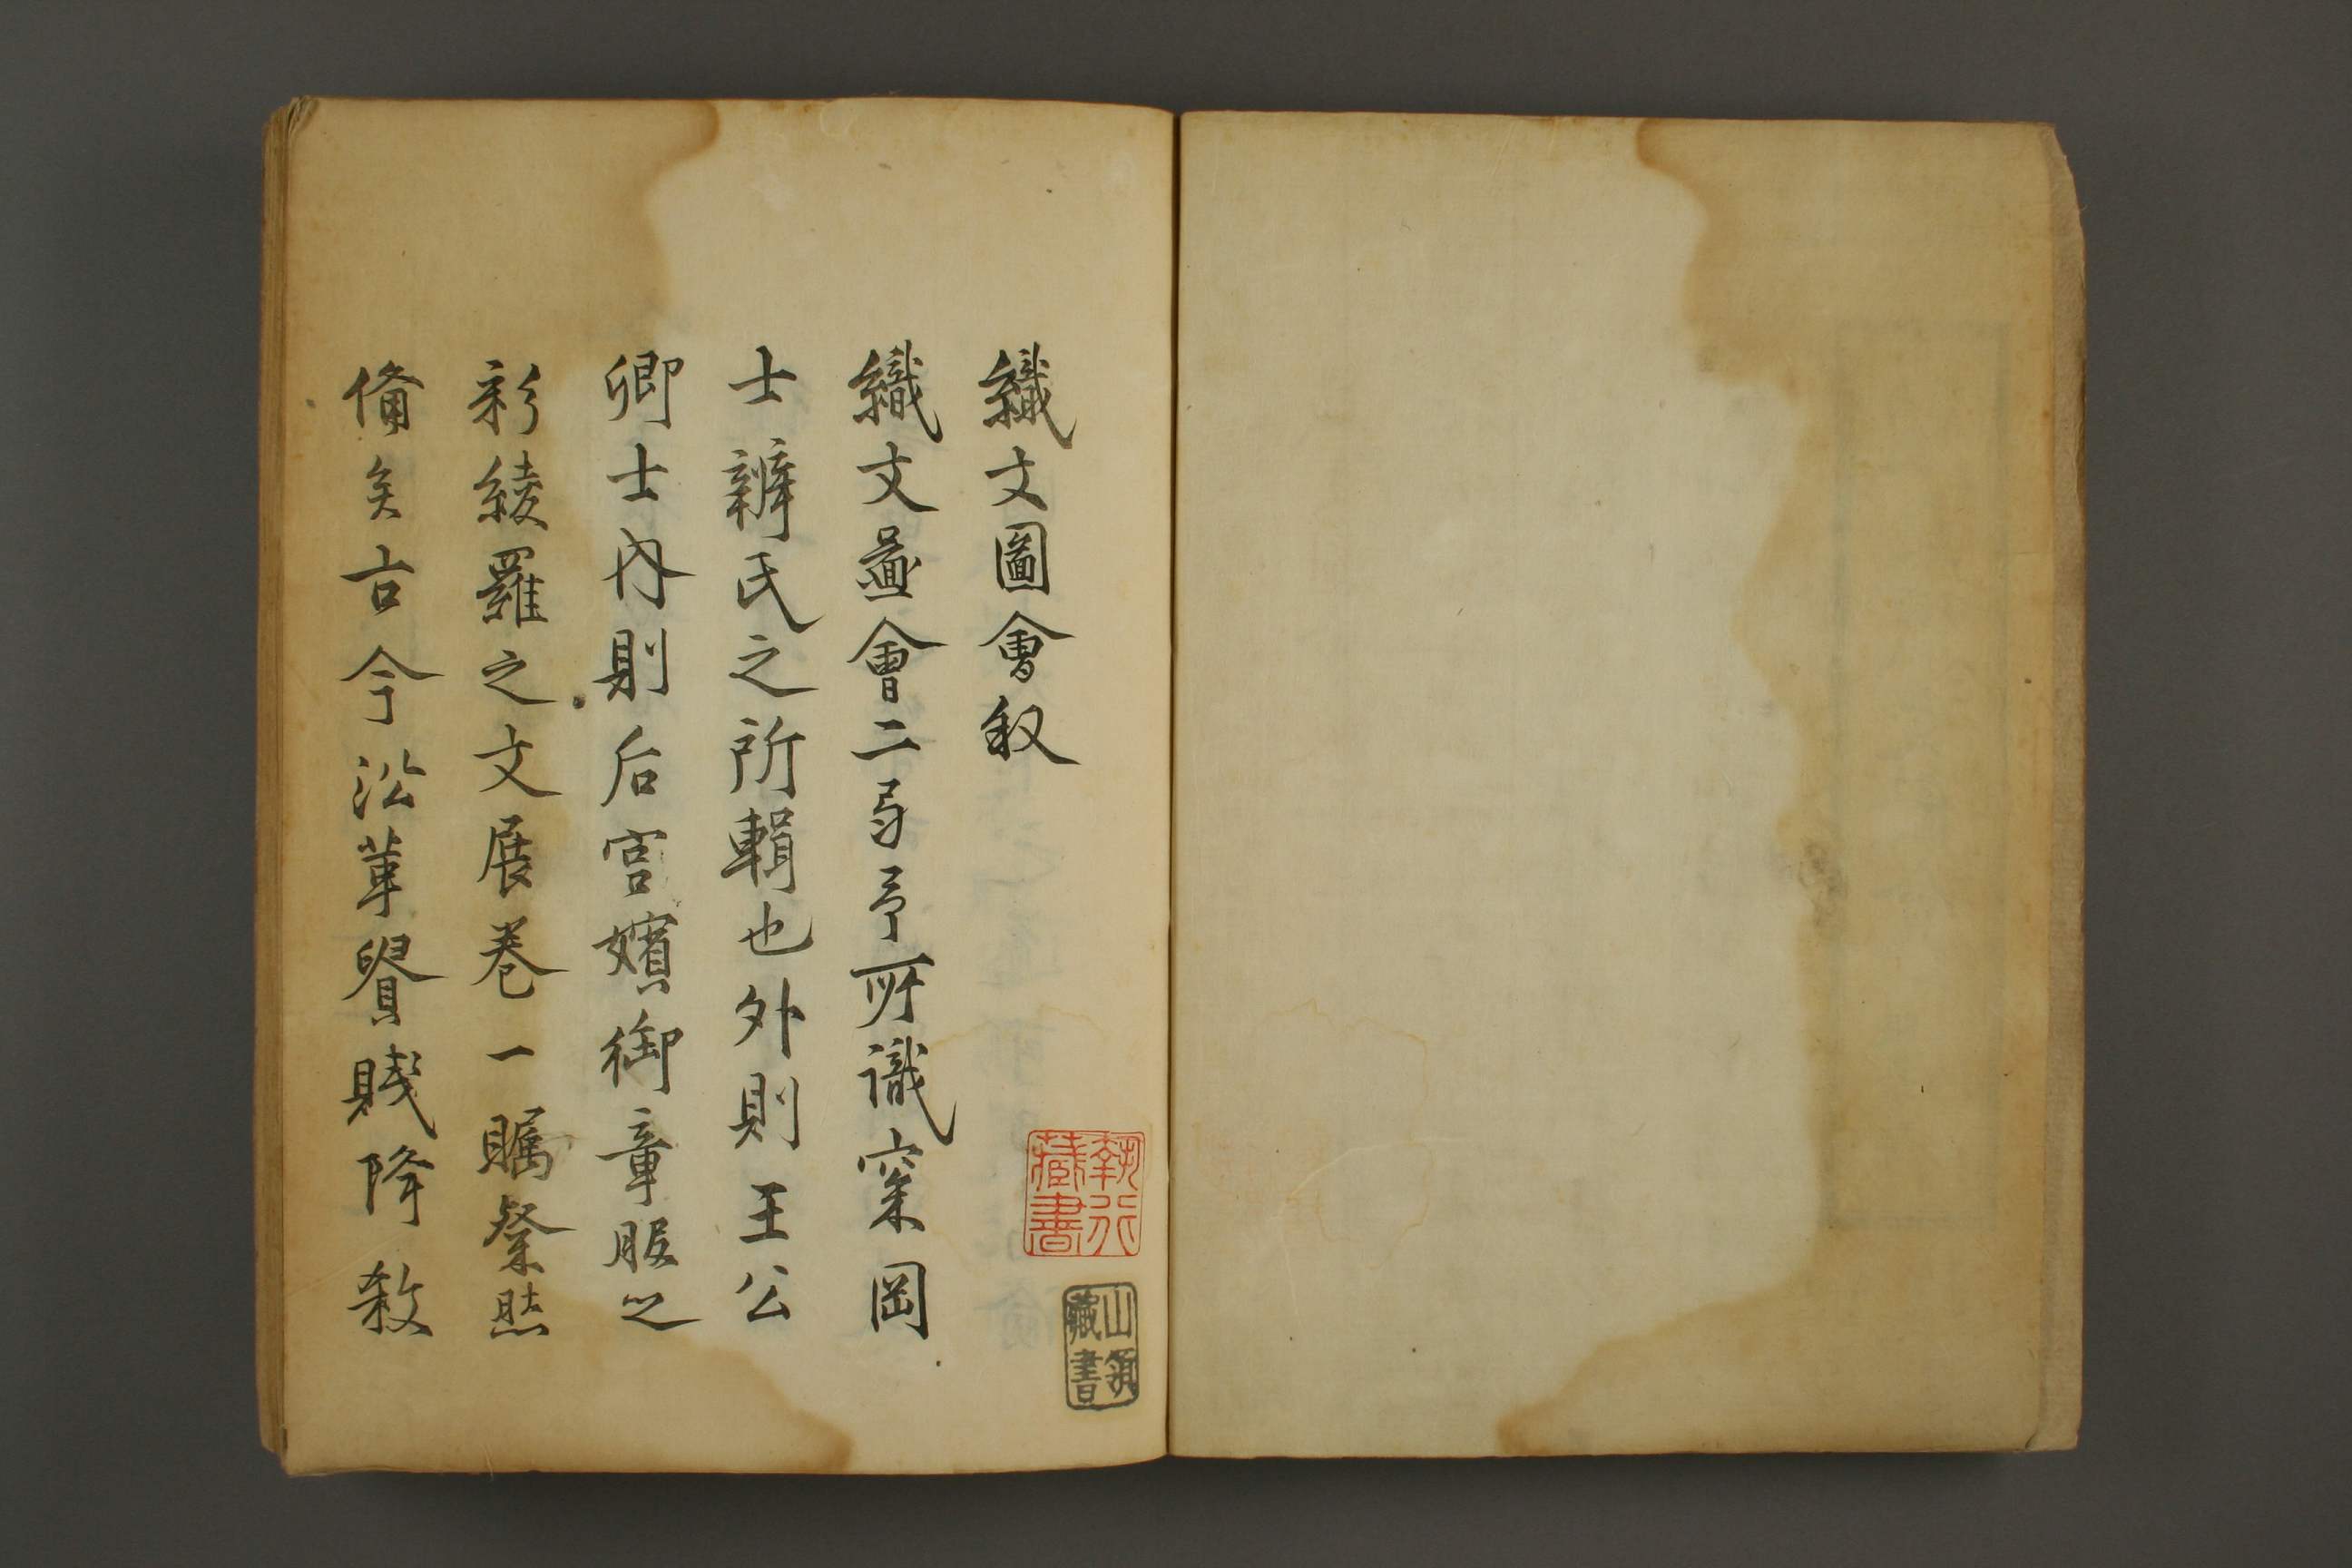 織文圖會叙
織文啚會二𢎨予所識窠岡
士辨氏之所輯也外則王公
卿士内則后宮嬪御章服之
彩綾羅之文展巻一矚粲然
備矣古今沿革貴賤降殺
執行藏書
山領藏書